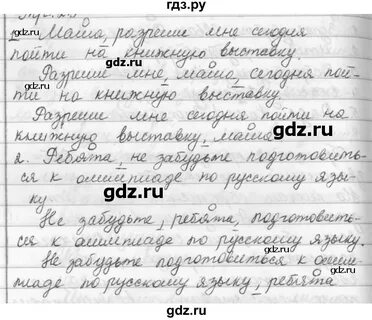 гдз.ру
1. Маша, разреши мне сегодня
пойти на книжную выставку.
Разреши мне, маша, сегодня пой-
ти на книжную выставку.
Разреши мне сегодня пойти на
книжную выставку, маша
2. Ребята, не забудьте подготовить-
ся к олимпиаде по русскому язы-
ку.
Не забудьте, ребята, подготовить-
ся к олимпиаде по русскому языку.
Не забудьте подготовиться к олим-
пиаде по русскому языку, ребята
gdz.ru
gdz.ru
gdz.ru
gdz.ru
gdz.ru
gdz.ru
gdz.ru
gdz.ru